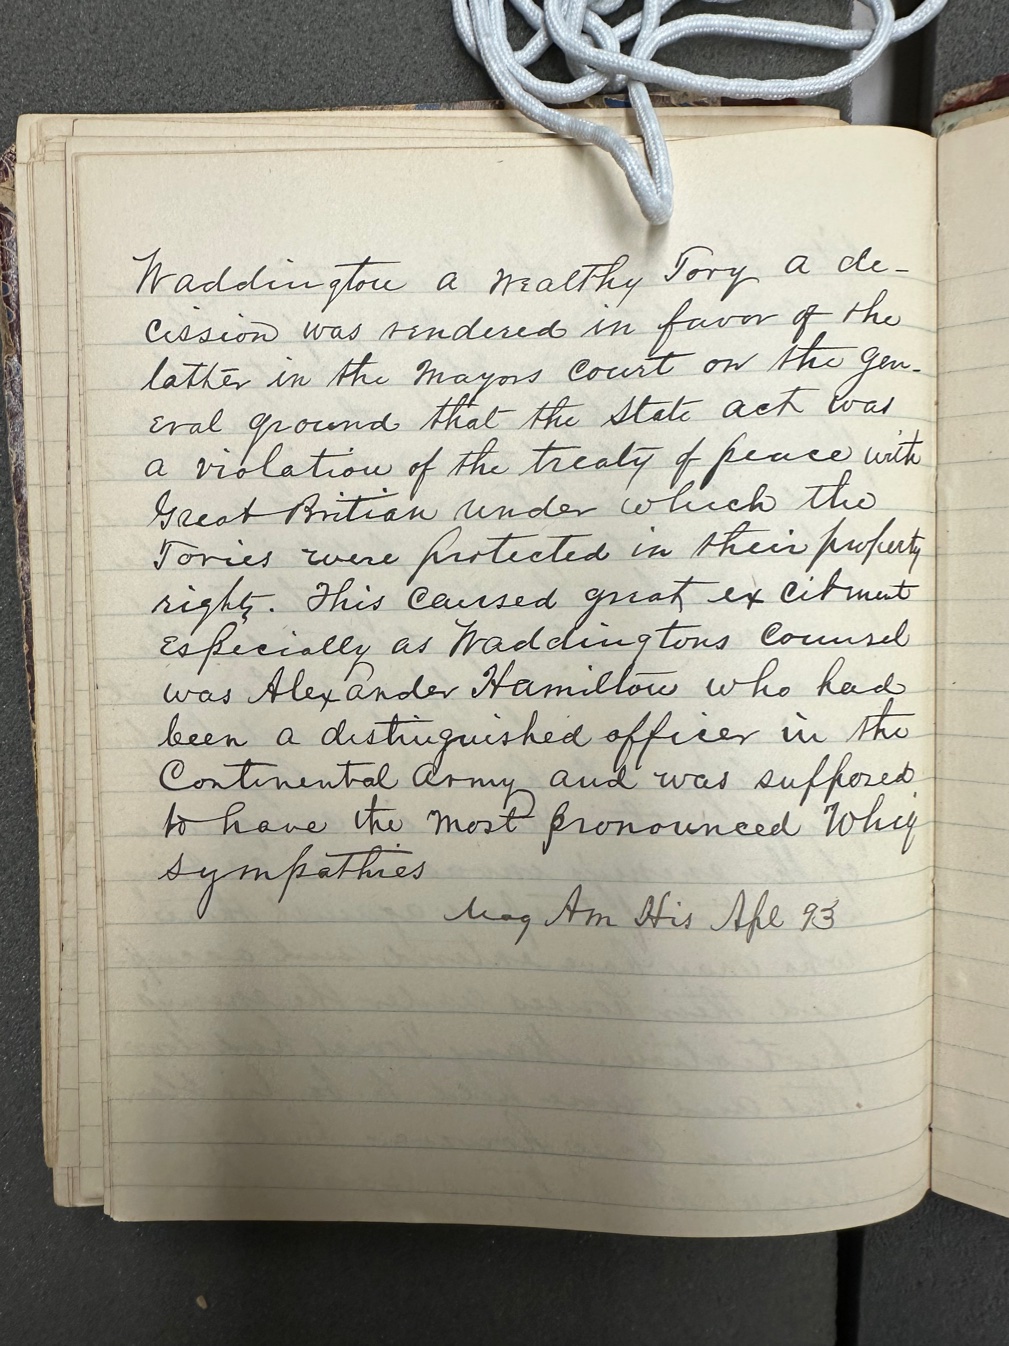 Waddington a wealthy Tory a de-
cission was rendered in favor of the
latter in the Mayors Court on the gen-
eral ground that the State act was
a violation of the treaty of peace with
Great Britian under which the
Tories were protected in their property
rights. This caused great excitment
especially as Waddingtons Counsel
was Alexander Hamilton who had
been a distinguished officer in the
Continental Army and was supposed
to have the most pronounced Whig
sympathies
Mag Am His Apl 93